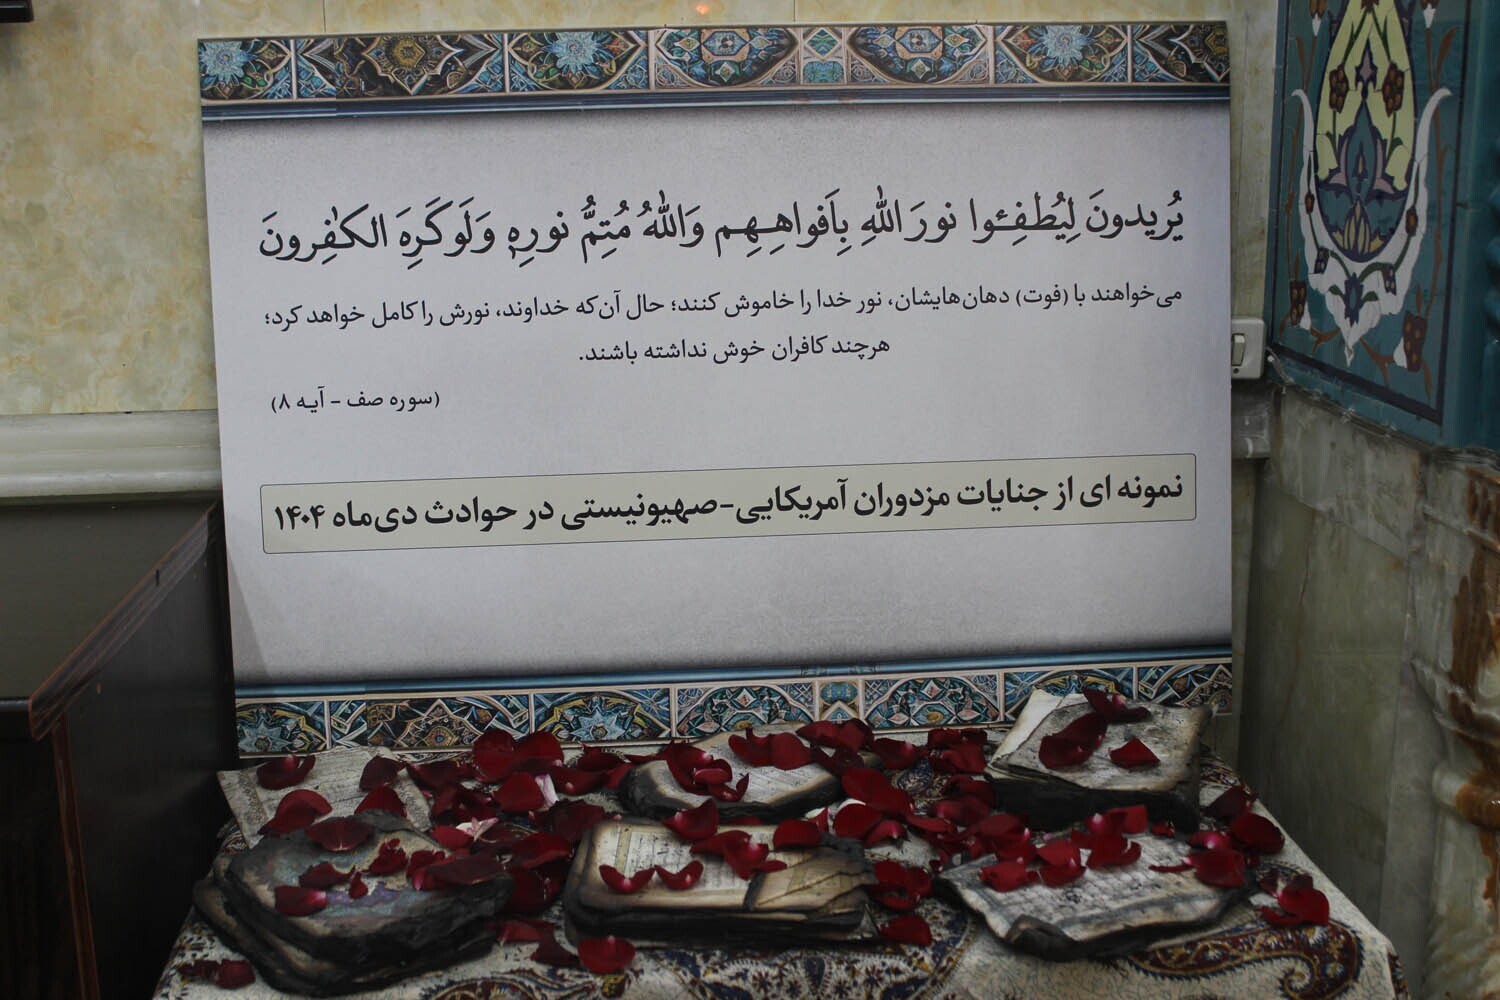 یُریدونَ لِیُطفِـٔوا نورَ اللهِ بِاَفواهِـهِـم وَاللهُ مُتِمُّ نورِهٖ وَلَو کَرِهَ الکٰفِرونَ
می‌خواهند با (فوت) دهان‌هایشان، نور خدا را خاموش کنند؛ حال آن‌که خداوند، نورش را کامل خواهد کرد؛
هرچند کافران خوش نداشته باشند.
(سوره صف - آیـه ۸)
نمونه ای از جنایات مزدوران آمریکایی-صهیونیستی در حوادث دی‌ماه ۱۴۰۴